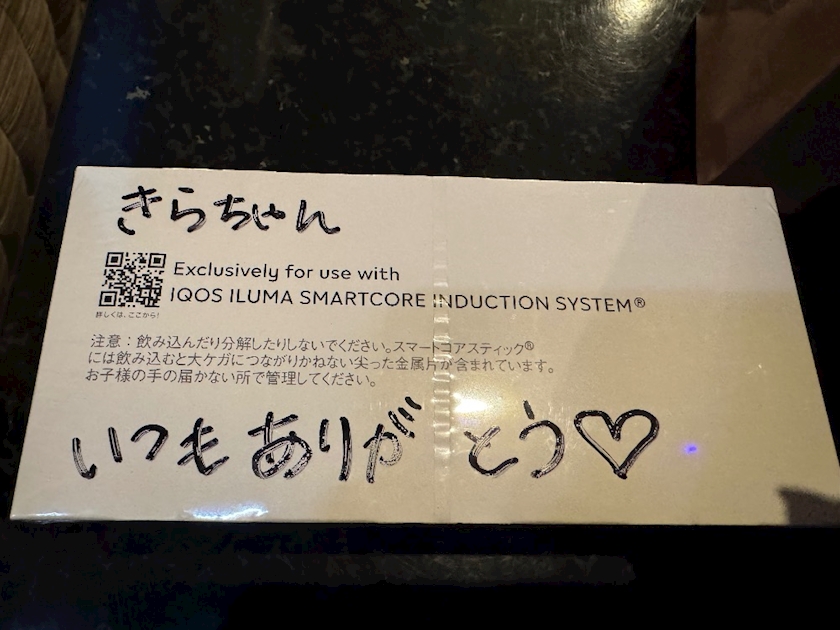 きらちゃん
Exclusively for use with
IQOS ILUMA SMARTCORE INDUCTION SYSTEM®
詳しくは、ここから!
注意:飲み込んだり分解したりしないでください。スマートコアスティック®
には飲み込むと大ケガにつながりかねない尖った金属片が含まれています。
お子様の手の届かない所で管理してください。
いつもありがとう♡